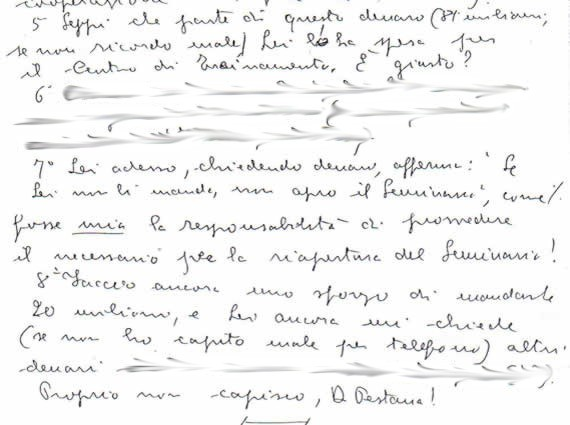 cooperazione
5 Seppi che parte di questo denaro (81 milioni,
se non ricordo male) Lei lo ha speso per
il Centro di Trainamento. È giusto?
6°
7° Lei adesso, chiedendo denaro, afferma: "Se
Lei non li manda, non apro il Seminario", come
fosse mia la responsabilità di provvedere
il necessario per la riapertura del Seminario!
8° Faccio ancora uno sforzo di mandarle
20 milioni, e Lei ancora mi chiede
(se non ho capito male per telefono) altri
denari
Proprio non capisco, D. Pestana!